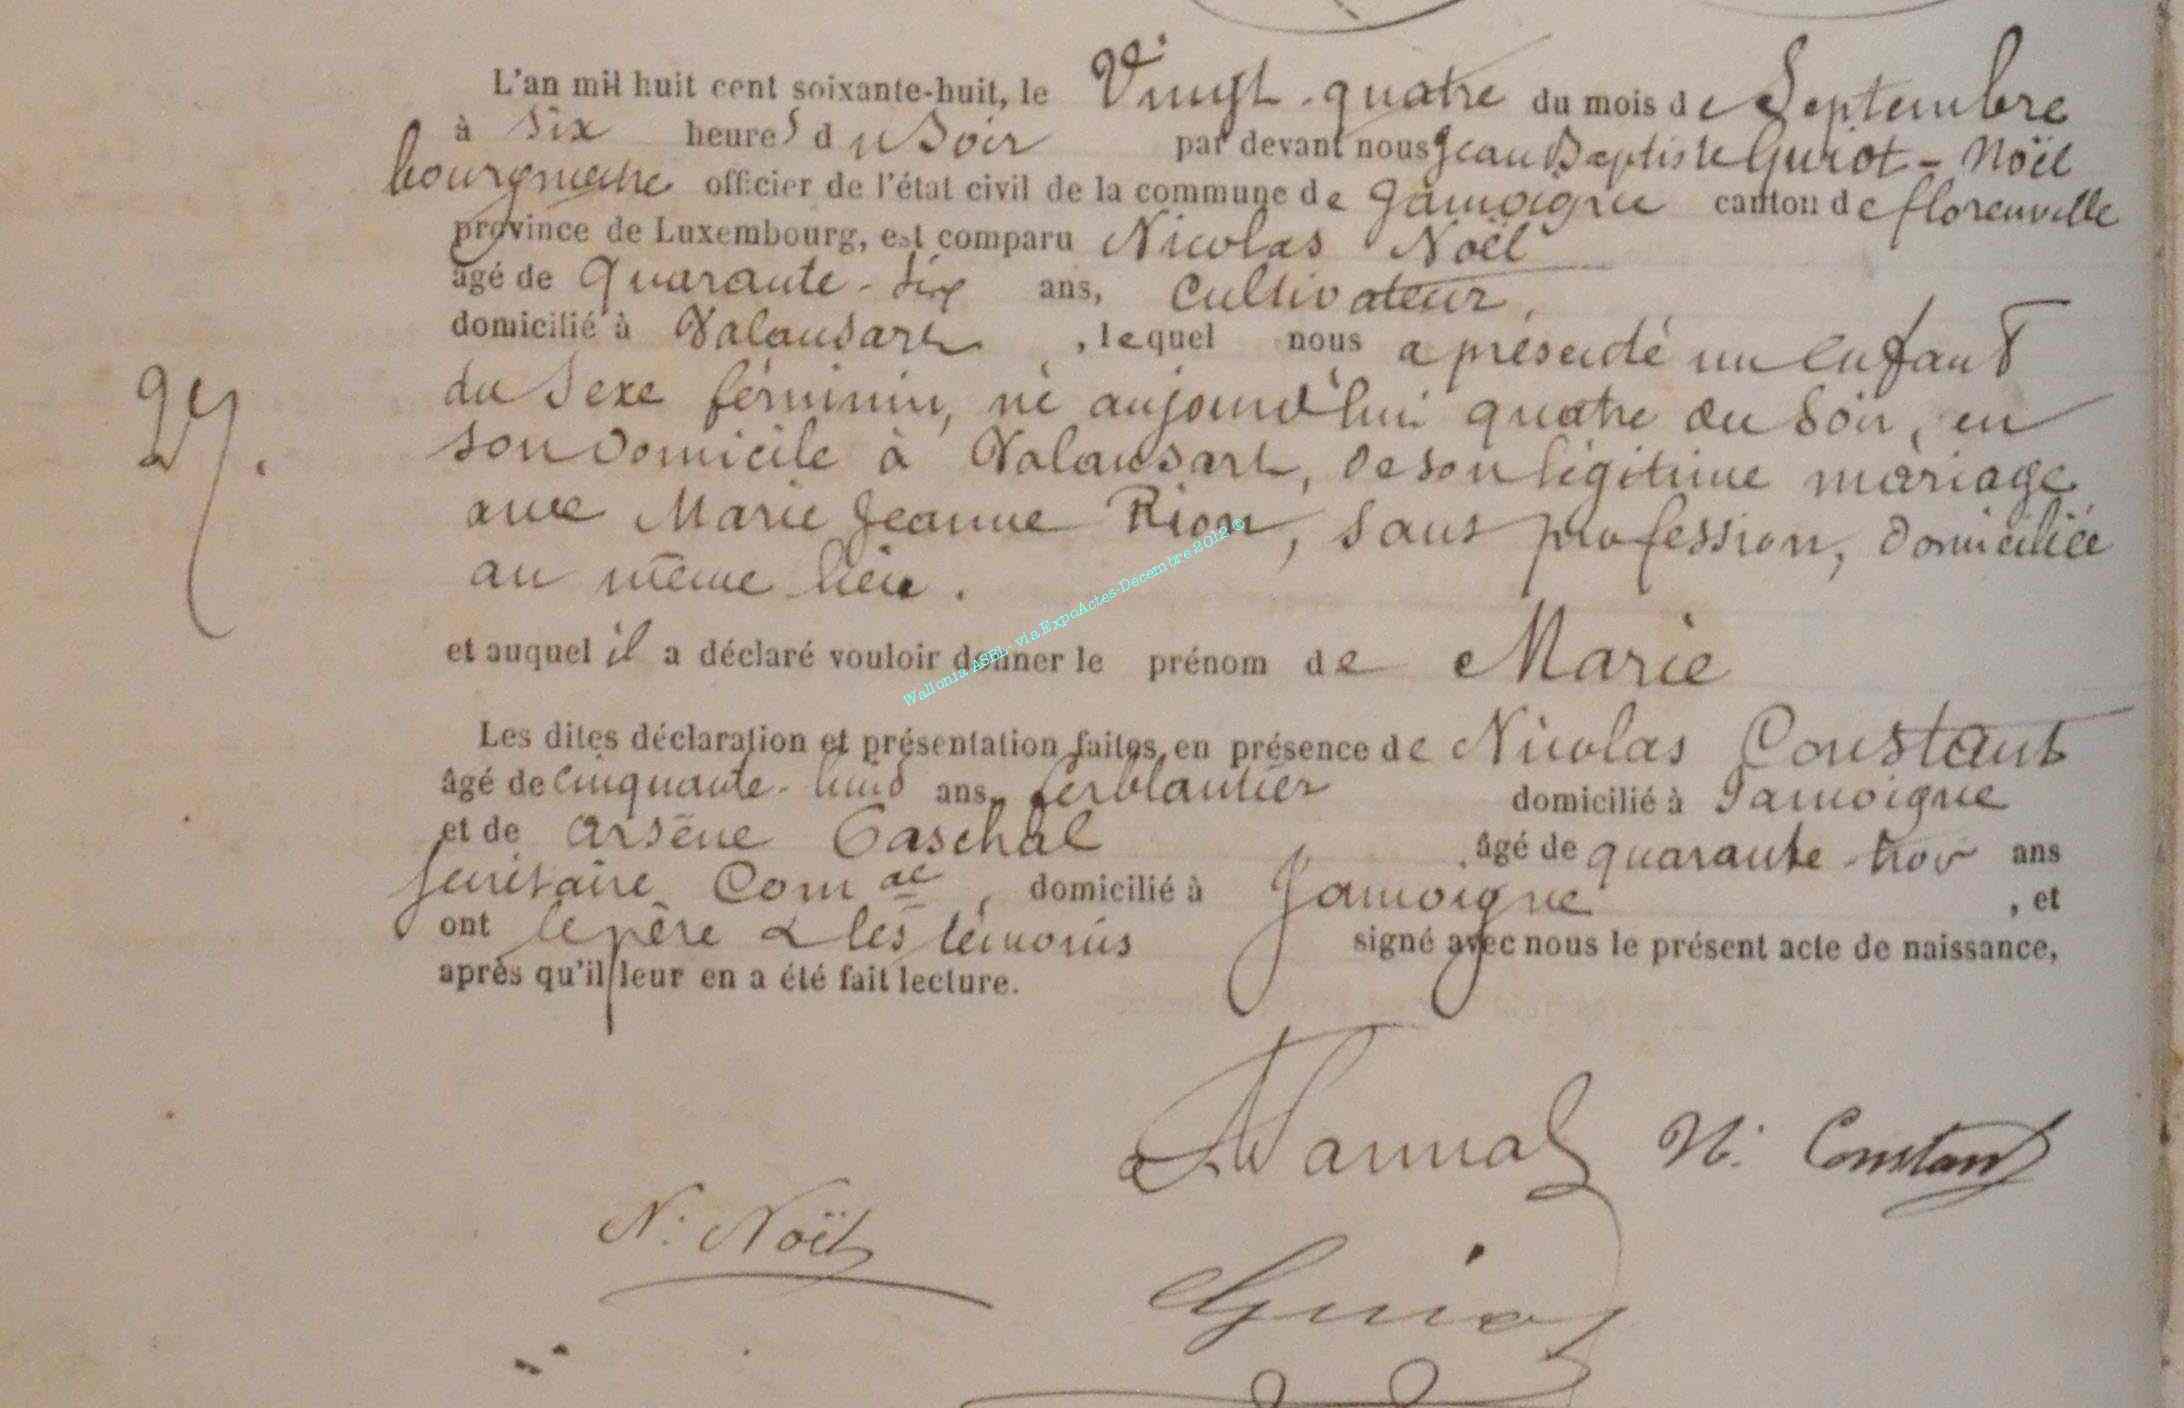 L'an mil huit cent soixante-huit, le Vingt-quatre du mois de Septembre
à Six heures du Soir par devant nous Jean Baptiste Guiot-Noël
bourgmestre officier de l'état civil de la commune de Jamoigne canton de florenville
province de Luxembourg, est comparu Nicolas Noël
âgé de quarante-six ans, Cultivateur,
domicilié à Valansart, lequel nous a présenté un enfant
du Sexe féminin, né aujourd'hui quatre du Soir, en
son domicile à Valansart, de son légitime mariage
avec Marie Jeanne Rion, sans profession, domiciliée
au même lieu.
et auquel il a déclaré vouloir donner le prénom de Marie
Les dites déclaration et présentation faites en présence de Nicolas Constant
âgé de cinquante-huit ans, ferblantier domicilié à Jamoigne
et de Arsène , âgé de quarante-trois ans
Secrétaire Com.al, domicilié à Jamoigne, et
ont le père & les témoins signé avec nous le présent acte de naissance,
après qu'il leur en a été fait lecture.
N. Constant
N. Noël
Guiot
Wallonia ASBL via ExpoActes-Décembre 2012 ©